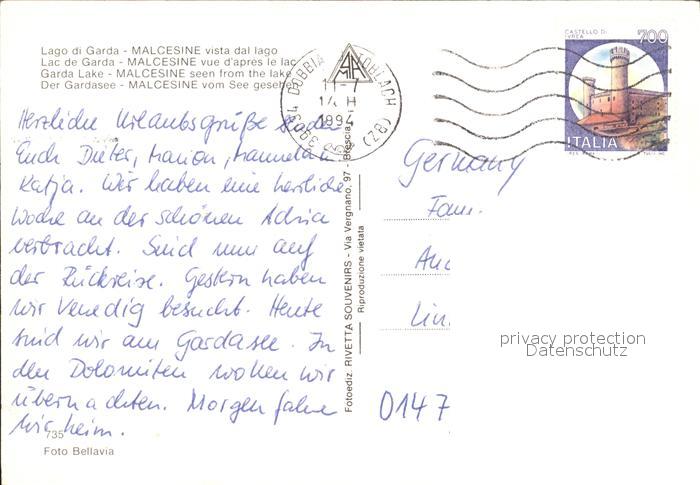 Lago di Garda - MALCESINE vista dal lago
Lac de Garda - MALCESINE vue d'apres le lac
Garda Lake - MALCESINE seen from the lake
Der Gardasee - MALCESINE vom See gesehen
Herzliche Urlaubsgrüße senden
Euch Dieter, Marion, Manuela u.
Katja. Wir haben eine herrliche
Woche an der schönen Adria
verbracht. Sind nun auf
der Rückreise. Gestern haben
wir Venedig besucht. Heute
sind wir am Gardasee. In
den Dolomiten wollen wir
übernachten. Morgen fahren
wir heim.
735
Foto Bellavia
Fotoediz. RIVETTA SOUVENIRS - Via Vergnano, 97 - Brescia
Riproduzione vietata
39034 DOBBIACO TOBLACH (BZ)
11-7
14 H
1994
CASTELLO DI
IVREA
700
ITALIA
Germany
Fam.
Lin
0147
privacy protection
Datenschutz